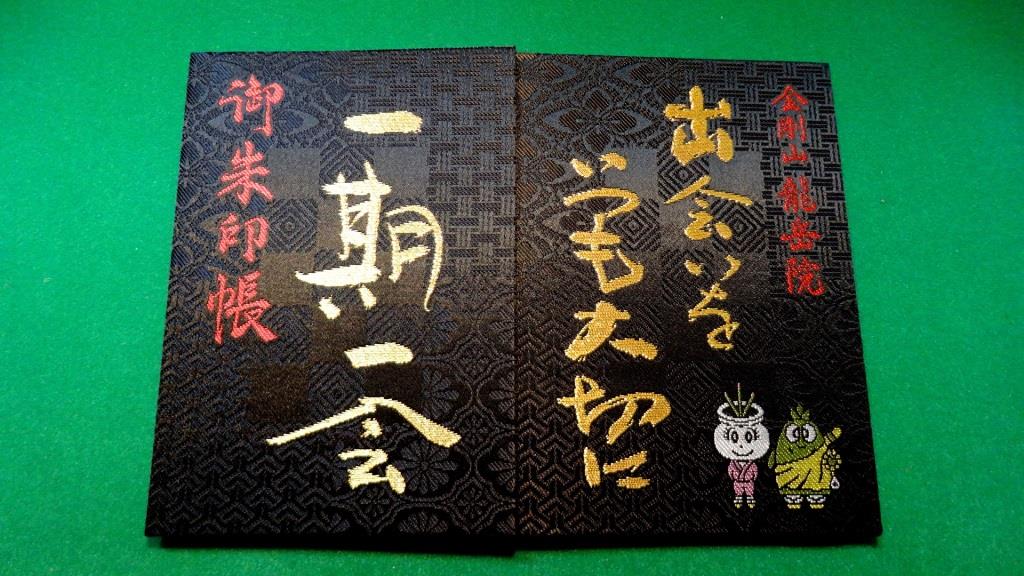 金剛山龍岳院
出会いを
いつも大切に
一期一会
御朱印帳